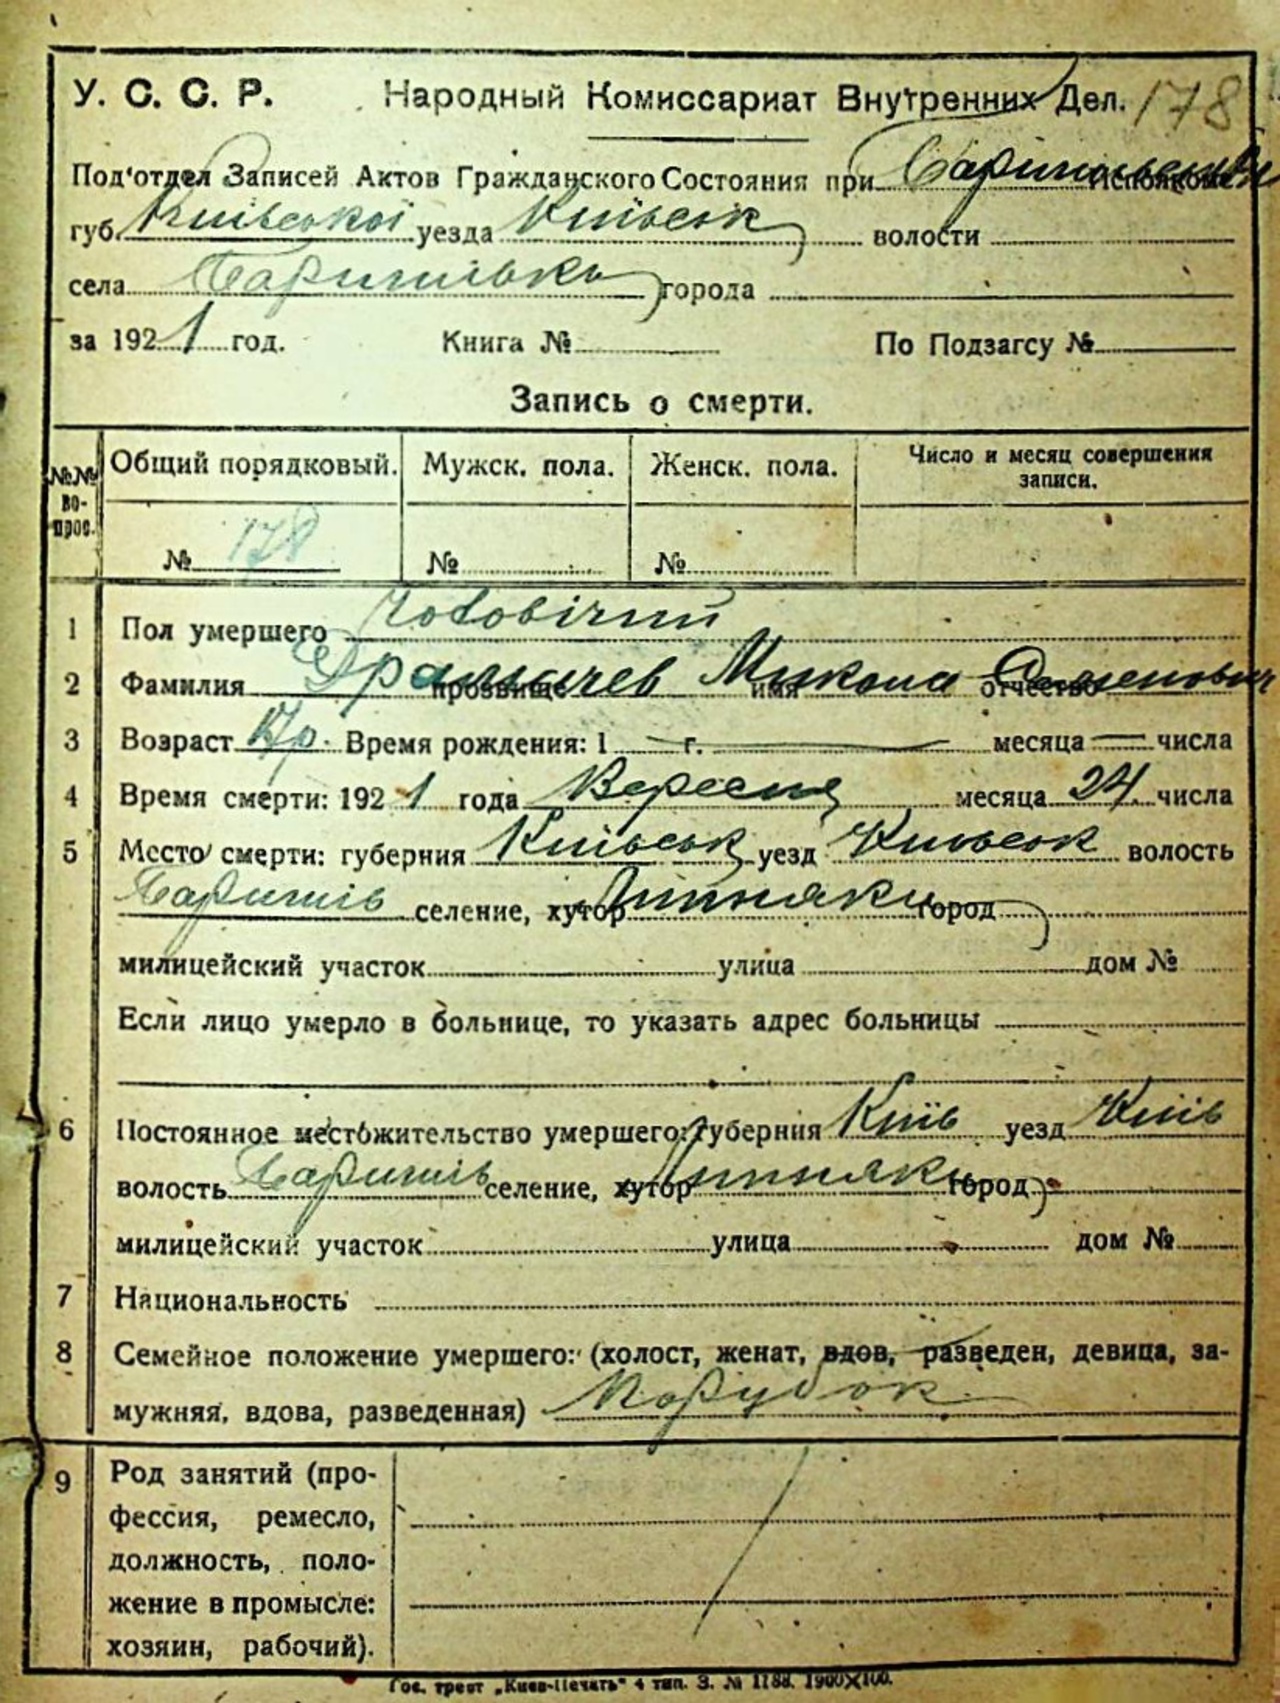 У. С. С. Р. Народный Комиссариат Внутренних Дел. 178
Под'отдел Записей Актов Гражданского Состояния при Исполкоме
губ. Київської уезда Київськ волости
села города
за 1921 год. Книга № По Подзагсу №
Запись о смерти.
№№ вопрос. Общий порядковый. Мужск. пола. Женск. пола. Число и месяц совершения записи.
№ 178 № №
1 Пол умершего Чоловічий
2 Фамилия прозвище Микола имя отчество
3 Возраст 17 р. Время рождения: 1 — г. — месяца — числа
4 Время смерти: 1921 года Вересня месяца 24 числа
5 Место смерти: губерния Київськ уезд Київськ волость
Баришів селение, хутор Липняки город
милицейский участок улица дом №
Если лицо умерло в больнице, то указать адрес больницы
6 Постоянное местожительство умершего: губерния Київ уезд Київ
волость Баришів селение, хутор Липняки город
милицейский участок улица дом №
7 Национальность
8 Семейное положение умершего: (холост, женат, вдов, разведен, девица, за-
мужняя, вдова, разведенная) Парубок
9 Род занятий (про-
фессия, ремесло,
должность, поло-
жение в промысле:
хозяин, рабочий).
Гос. трест „Киев-Печать" 4 тип. З. № 1188. 1900×100.